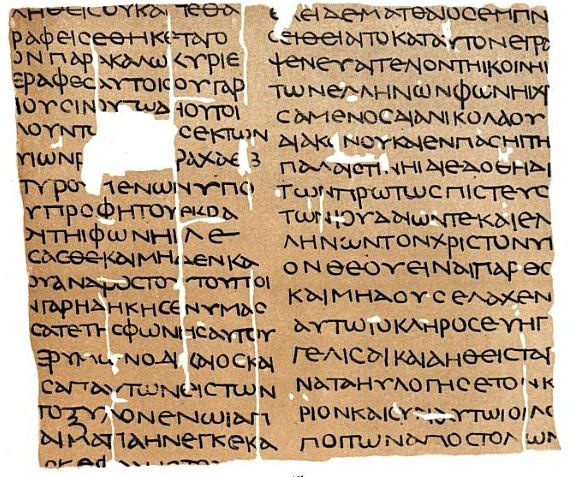 ΛΗΘΕΙCΟΥΚΑΙΤΕΘΑ
ΡΑΦΕΙCΕΘΗΚΕΤΑΓΟ
ΟΝΠΑΡΑΚΑΛΩΚΥΡΙΕ
ΕΡΑΦΕCΑΥΤΟΙCΟΥΓΑΡ
ΙΟΥCΙΝΟΥΤΩΔΙΟΥΤΟΙ
ΛΟΥΝΤ CΕΚΤΩΝ
ΥΙΩΝΡ ΡΑΧΔΕ
ΤΥΡΟΜΕΝΩΝΥΠΟ
ΥΠΡΟΦΗΤΟΥΕΚΡΑ
ΟΝΤΗΙΦΩΝΗΙΛΕ
CΑCΘΕΚΑΙΜΗΔΕΝΚΑ
ΟΥΑΝΑΨΩCΤΟΥΤΟΥΠΟΙ
ΝΓΑΡΗΔΗΚΗCΕΝΥΜΑC
CΑΤΕΤΗCΦΩΝΗCΑΥΤΟΥ
ΘΡΥΜΩΝΟΔΙΚΑΙΟCΚΑΙ
CΑΠΑΥΤΩΝΕΙCΤΩΝ
ΤΟΞΥΛΟΝΕΝΩΙΑΠ
ΑΙΜΑΤΙΑΗΝΕΓΚΕΚΑ
ΛΕΙΔΕΜΑΤΘΑΙΟCΕΜΠΝ
CΕΙΘΕΙΑΠΟΚΑΤΑΥΤΟΝΕΓΡΑ
ΨΕΝΕΥΑΓΓΕΛΟΝΤΗΙΚΟΙΝΗΙ
ΤΩΝΕΛΛΗΝΩΝΦΩΝΗΙΧΡ
CΑΜΕΝΟCΔΙΑΝΙΚΟΛΑΟΥ
ΔΙΑΚ ΝΟΥΚΑΙΕΝΠΑCΗΙΤΗ
ΠΑΛΑΙCΤΙΝΗΙΔΙΕΔΟΘΗΔΙ
ΤΩΝΠΡΩΤΩCΠΙCΤΕΥC
ΤΩΝΙΟΥΔΑΙΩΝΤΕΚΑΙΕΛ
ΛΗΝΩΝΤΟΝΧΡΙCΤΟΝΥΙ
ΟΝΘΕΟΥΕΙΝΑΙΠΑΡΘC
ΚΑΙΜΗΔΟΥCΕΛΑΧΕΝ
ΑΥΤΩΙΟΚΛΗΡΟCΕΥΗΓ
ΓΕΛΙCΔΙΚΑΙΑΗΘΕΙCΤΑΙ
ΝΑΤΑΗΥΛΟΓΗCΕΤΟΝΚ
ΡΙΟΝΚΑΙCΥΝΑΥΤΩΙΟΙΛΟ
ΠΟΙΤΩΝΑΠΟCΤΟΛΩΝ